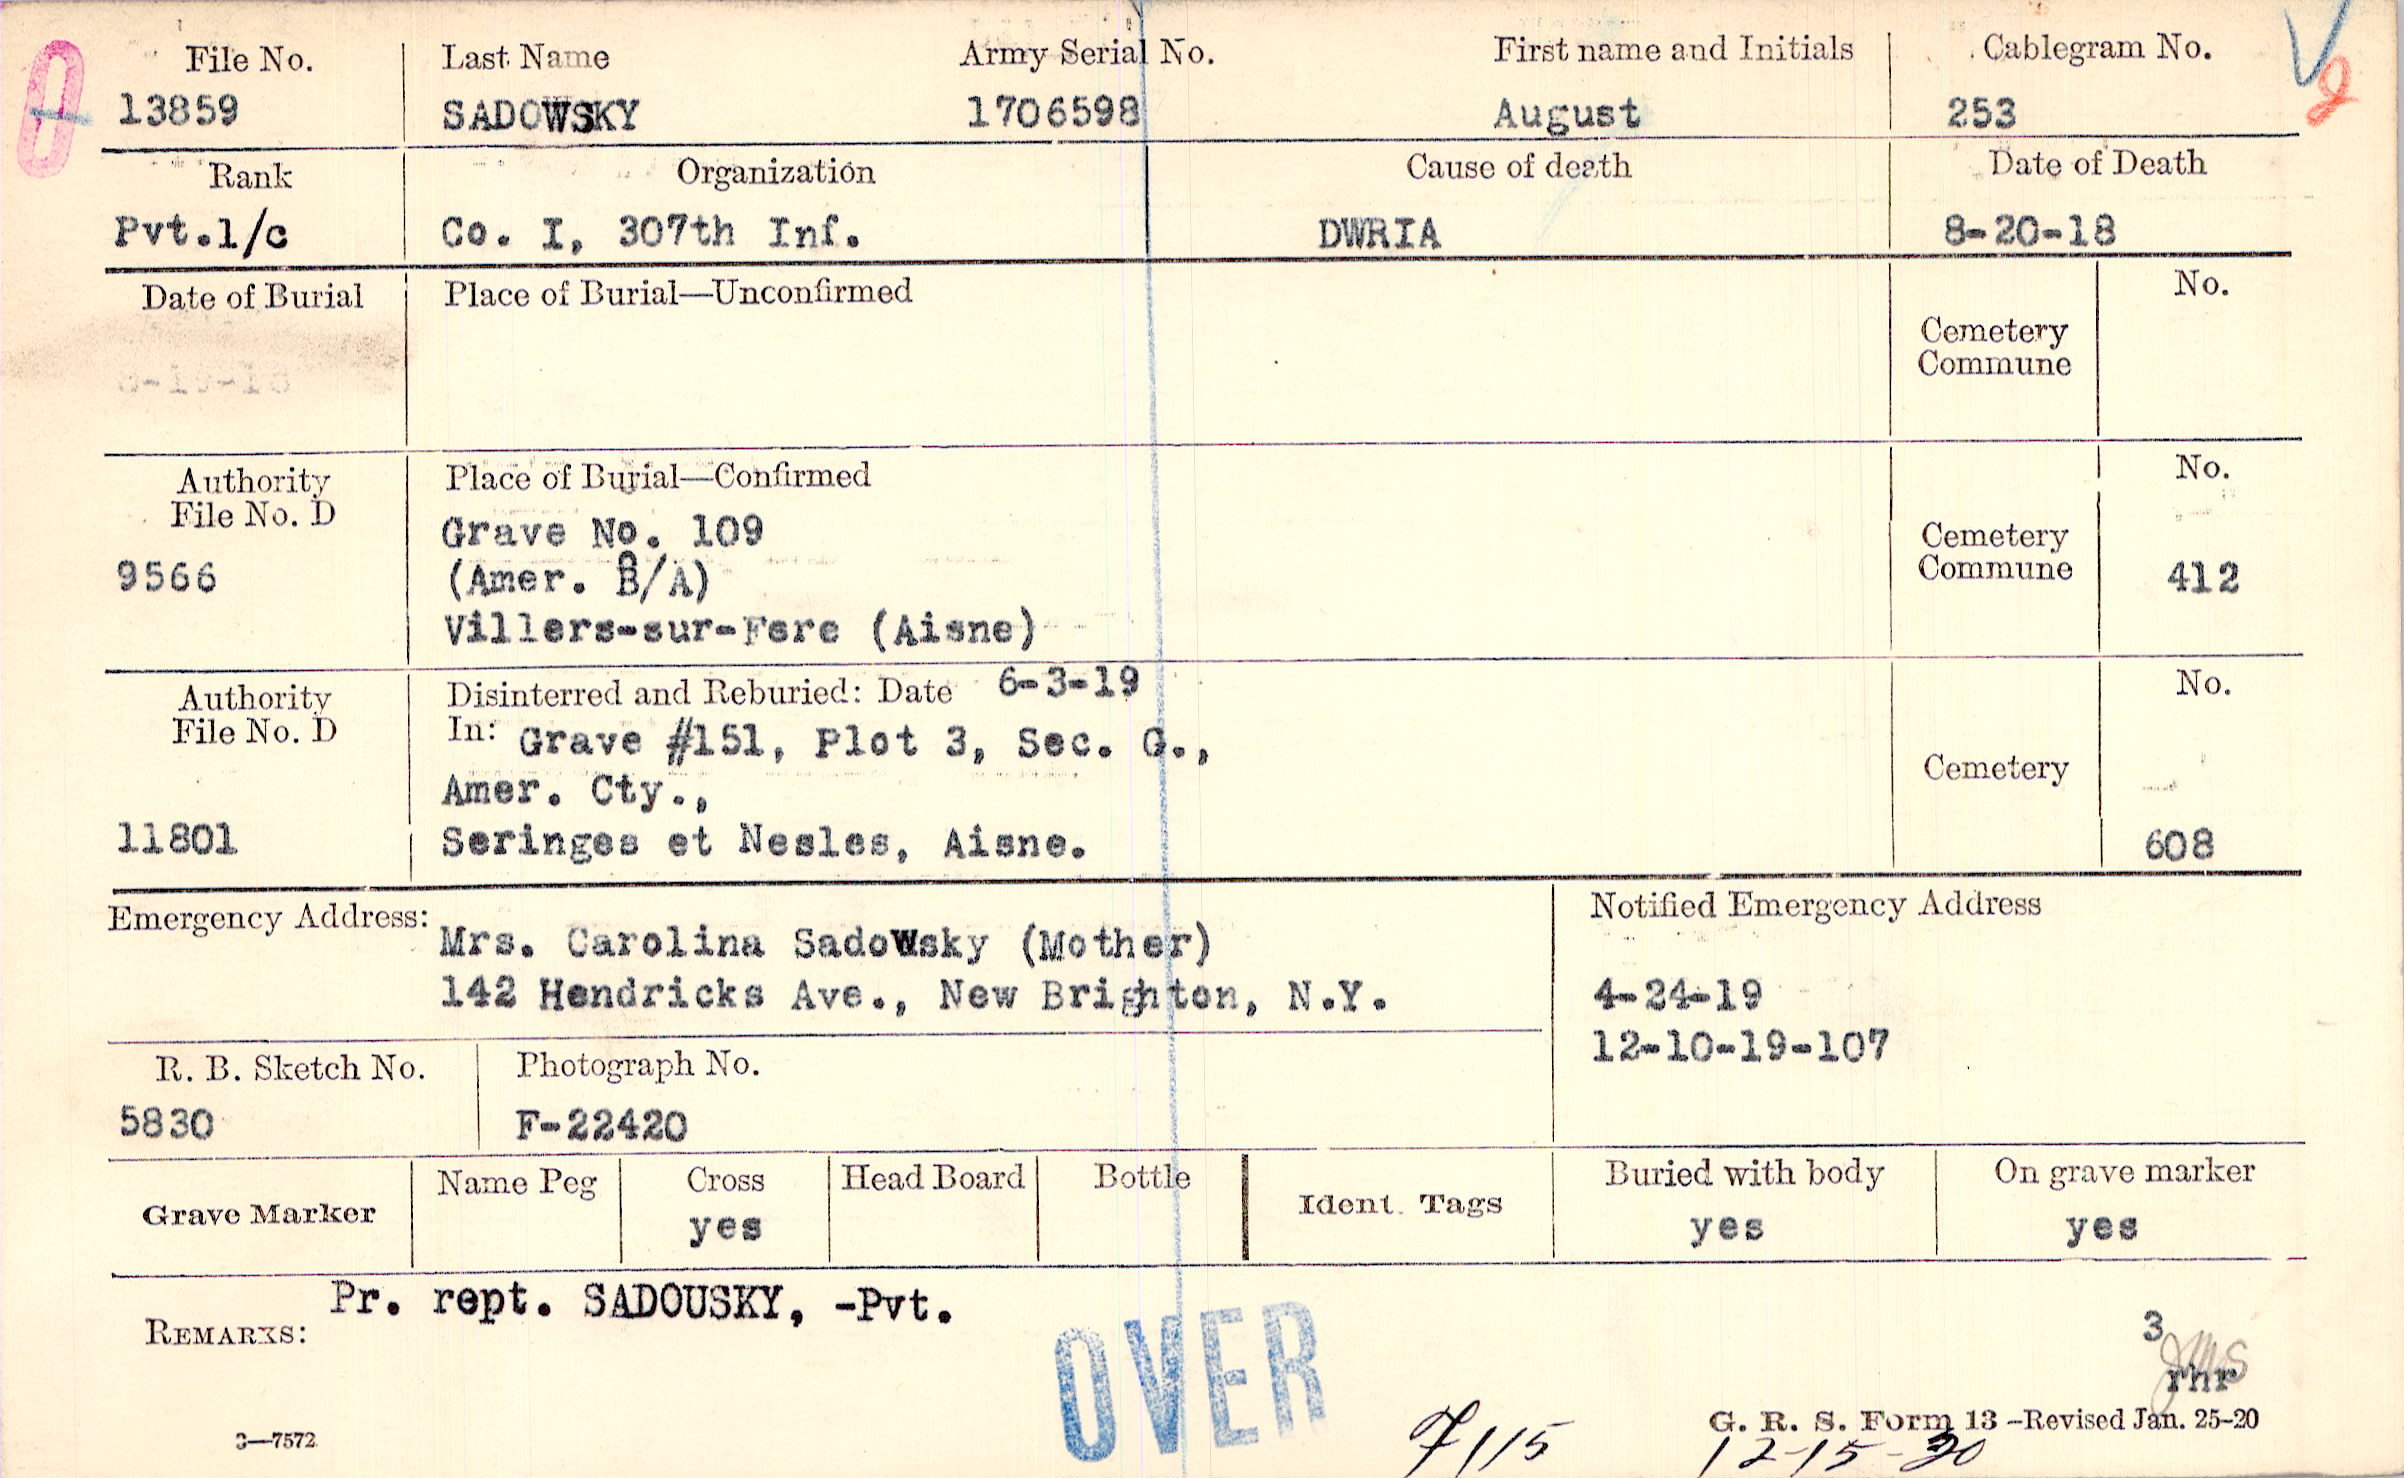 File No. Last Name Army Serial No. First name and Initials Cablegram No.
13859 SADOWSKY 1706598 August 253
Rank Organization Cause of death Date of Death
Pvt.1/c Co. I, 307th Inf. DWRIA 8-20-18
Date of Burial Place of Burial—Unconfirmed No.
Cemetery
Commune
Authority Place of Burial—Confirmed No.
File No. D Grave No. 109 Cemetery
9566 (Amer. B/A) Commune 412
Villers-sur-Fere (Aisne)
Authority Disinterred and Reburied: Date 6-3-19 No.
File No. D In: Grave #151, Plot 3, Sec. G.,
Amer. Cty., Cemetery
11801 Seringes et Nesles, Aisne. 608
Emergency Address: Notified Emergency Address
Mrs. Carolina Sadowsky (Mother)
142 Hendricks Ave., New Brighton, N.Y. 4-24-19
12-10-19-107
R. B. Sketch No. Photograph No.
5830 F-22420
Grave Marker Name Peg Cross Head Board Bottle Ident. Tags Buried with body On grave marker
yes yes yes
REMARKS: Pr. rept. SADOUSKY, -Pvt.
3
rhr
OVER
3—7572 7/15 G. R. S. Form 13 -Revised Jan. 25-20
12-15-20